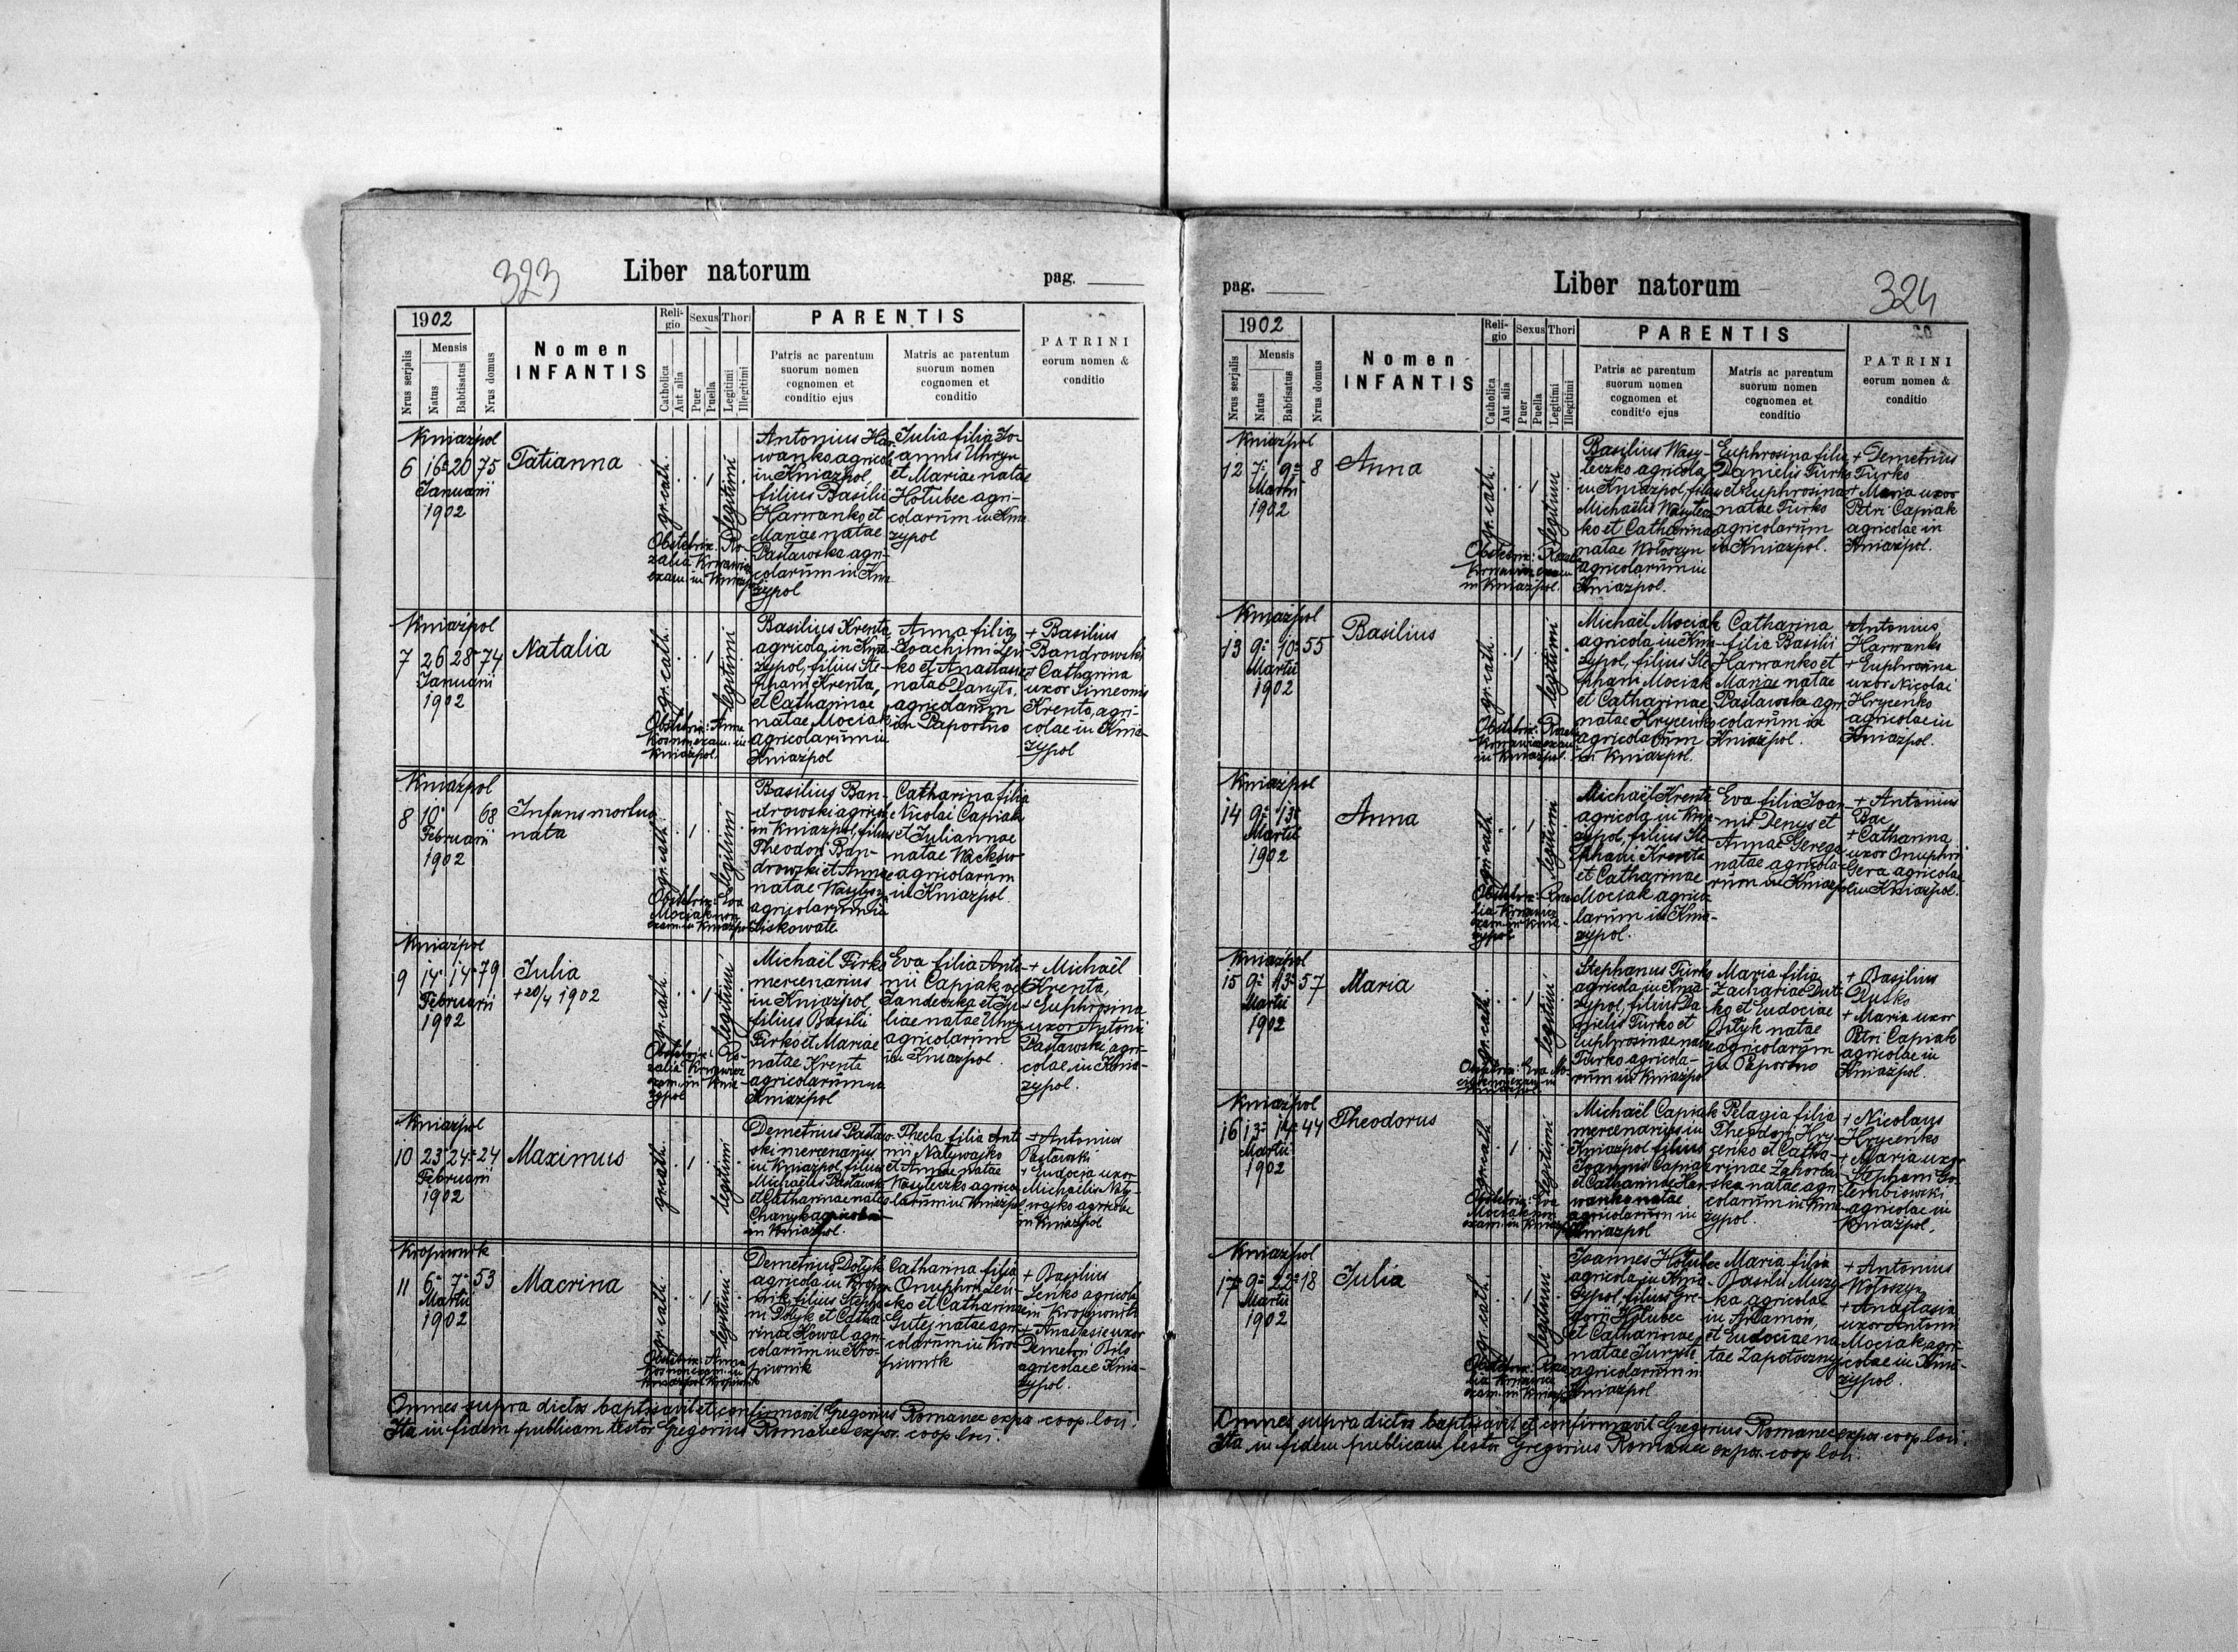 323
Liber natorum
pag.
1902
Nrus serjalis
Mensis
Natus
Babtisatus
Nrus domus
Nomen
INFANTIS
Reli-
gio
Catholica
Aut alia
Sexus
Puer
Puella
Thori
Legitimi
Illegitimi
PARENTIS
Patris ac parentum
suorum nomen
cognomen et
conditio ejus
Matris ac parentum
suorum nomen
cognomen et
conditio
PATRINI
eorum nomen &
conditio
Kniażpol
6 16 20 75
Januarii
1902
Tatianna
gr. cath.
legitimi
Antonius Har-
wanko agricola
in Kniażpol
filius Basilii
Harwanko et
Mariae natae
Pasławska agri-
colarum in Knia-
żypol
Julia filia Jo-
annis Uhryn
et Mariae natae
Hołubec agri-
colarum in Knia-
żypol
Kniażpol
7 26 28 74
Januarii
1902
Natalia
gr. cath.
legitimi
Basilius Krenta
agricola in Knia-
żypol, filius Ste-
phani Krenta,
et Catharinae
natae Mociak
agricolarum in
Kniażpol
Anna filia
Joachimi Len-
ko et Anastasiae
natae Danyls.
agricolarum
in Paportno
+ Basilius
Bandrowski
+ Catharina
uxor Simeonis
Krenta, agri-
colae in Knia-
żypol
Kniażpol
8 10 68
Februarii
1902
Infans mortuo
nata
gr. cath.
legitimi
Basilius Ban-
drowski agricola
in Kniażpol, filius
Theodori Ban-
drowski et Annae
natae Wasylysz.
agricolarum in
Liskowate
Catharina filia
Nicolai Capiak
et Juliannae
natae Wackow
agricolarum
in Kniażpol.
Kniażpol
9 14 14 79
Februarii
1902
Julia
+ 20/4 1902
gr. cath.
legitimi
Michaël Firko
mercenarius
in Kniażpol,
filius Basilii
Firko et Mariae
natae Krenta
agricolarum in
Kniażpol
Eva filia Anto-
nii Capiak vel
Jandeczka et Ju-
liae natae Uhryn
agricolarum
in Kniażpol.
+ Michaël
Krenta,
+ Euphrosina
uxor Antonii
Pasławski agri-
colae in Knia-
żypol.
Kniażpol
10 23 24 24
Februarii
1902
Maximus
gr. cath.
legitimi
Demetrius Pasław-
ski mercenarius
in Kniażpol, filius
Michaëlis Pasławski
et Catharinae natae
Chanyk agricolae
in Kniażpol.
Thecla filia Anto-
nii Natywajko
et Annae natae
Wasyleczko agrico-
larum in Kniażpol
+ Antonius
Pasławski
+ Eudocia uxor
Michaëlis Naty-
wajko agricolae
in Kniażpol
Kropiwnik
11 6 7 53
Martii
1902
Macrina
gr. cath.
legitimi
Demetrius Dolyk
agricola in Kropiw-
nik, filius Stepha-
ni Dolyk et Catha-
rinae Kowal agri-
colarum in Kro-
piwnik
Catharina filia
Onuphrii Len-
ko et Catharinae
Gutej natae agri-
colarum in Kro-
piwnik
+ Basilius
Lenko agricola
in Kropiwnik
+ Anastasie uxor
Demetrii Bilo
agricolae e Knia-
żypol.
Omnes supra dictos baptisavit et confirmavit Gregorius Romanec expo. coop. loci.
Ita in fidem publicam testor Gregorius Romanec expos. coop loci.
pag.
Liber natorum
324
1902
Nrus serjalis
Mensis
Natus
Babtisatus
Nrus domus
Nomen
INFANTIS
Reli-
gio
Catholica
Aut alia
Sexus
Puer
Puella
Thori
Legitimi
Illegitimi
PARENTIS
Patris ac parentum
suorum nomen
cognomen et
conditio ejus
Matris ac parentum
suorum nomen
cognomen et
conditio
PATRINI
eorum nomen &
conditio
Kniażpol
12 7 9 8
Martii
1902
Anna
gr. cath.
legitimi
Basilius Wasy-
leczko agricola
in Kniażpol, filius
Michaëlis Wasylecz-
ko et Catharinae
natae Wołoszyn
agricolarum in
Kniażpol.
Euphrosina filia
Danielis Turko
et Euphrosinae
natae Turko
agricolarum
in Kniażpol.
+ Demetrius
Turko
+ Maria uxor
Petri Capiak
agricolae in
Kniażpol.
Kniażpol
13 9 10 55
Martii
1902
Basilius
gr. cath.
legitimi
Michaël Mociak
agricola in Knia-
żypol, filius Ste-
phani Mociak
et Catharinae
natae Hrycenko
agricolarum
in Kniażpol.
Catharina
filia Basilii
Harwanko et
Mariae natae
Pasławska agri-
colarum in
Kniażpol.
+ Antonius
Harwanko
+ Euphrosina
uxor Nicolai
Hrycenko
agricolae in
Kniażpol.
Kniażpol
14 9 13
Martii
1902
Anna
gr. cath.
legitimi
Michaël Krenta
agricola in Knia-
żypol, filius Ste-
phani Krenta
et Catharinae
Mociak agrico-
larum in Knia-
żypol.
Eva filia Joan-
nis Denys et
Annae Gerega
natae agricola-
rum in Kniażpol
+ Antonius
Bac
+ Catharina
uxor Onuphri
Gera agricolae
in Kniażpol.
Kniażpol
15 9 13 57
Martii
1902
Maria
gr. cath.
legitimi
Stephanus Turko
agricola in Knia-
żypol, filius Da-
nielis Turko et
Euphrosinae natae
Turko agricola-
rum in Kniażpol
Maria filia
Zachariae Dut-
ko et Eudociae
Dityk natae
agricolarum
in Paportno
+ Basilius
Dutko
+ Maria uxor
Petri Capiak
agricolae in
Kniażpol.
Kniażpol
16 13 14 44
Martii
1902
Theodorus
gr. cath.
legitimi
Michaël Capiak
mercenarius in
Kniażpol filius
Joannis Capiak
et Catharinae Har-
wanko natae
agricolarum in
Kniażpol
Pelagia filia
Theodori Hry-
cenko et Catha-
rinae Zahorbi-
ska natae agri-
colarum in Knia-
żypol.
+ Nicolaus
Hrycenko
+ Maria uxor
Stephani Go-
lembiowski
agricolae in
Kniażpol.
Kniażpol
17 9 22 18
Martii
1902
Julia
gr. cath.
legitimi
Joannes Hołubec
agricola in Knia-
żypol, filius Gre-
gorii Hołubec
et Catharinae
natae Juryste
agricolarum in
Kniażpol
Maria filia
Basilii Muzy-
ka agricolae
in Arłamow,
et Eudociae na-
tae Zapotoczny
+ Antonius
Wołoszyn
+ Anastasia
uxor Antonii
Mociak, agri-
colae in Knia-
żypol.
Omnes supra dictos baptisavit et confirmavit Gregorius Romanec expos coop. loci.
Ita in fidem publicam testor Gregorius Romanec expos. coop loci.